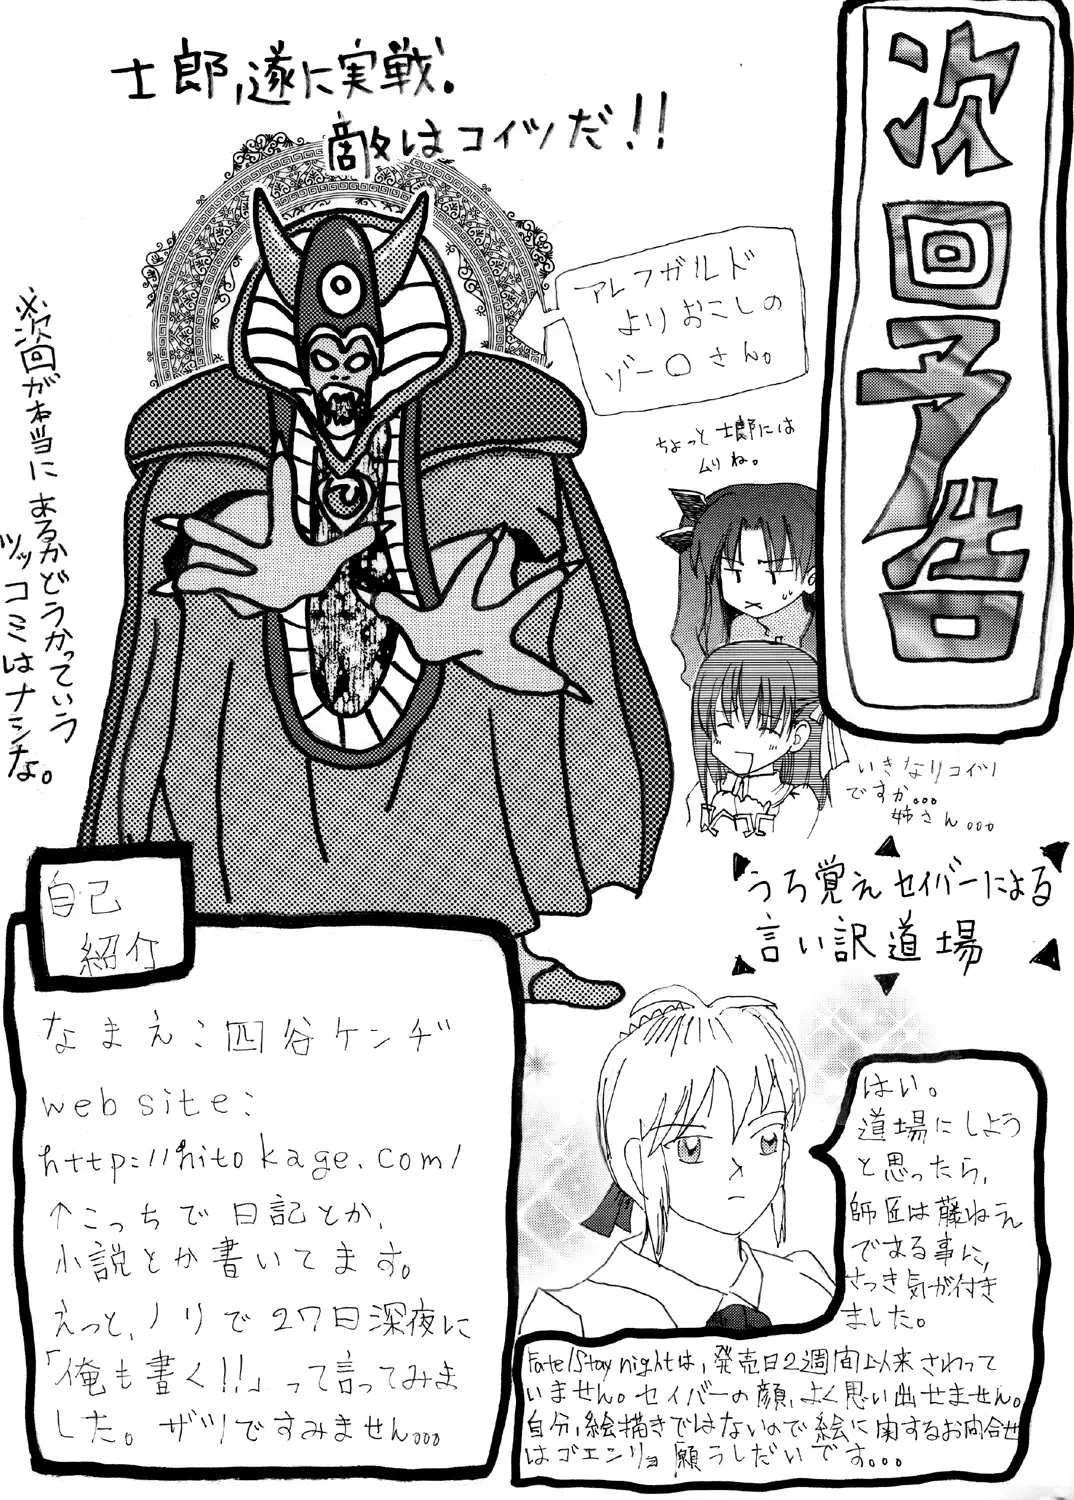 次回予告
士郎,遂に実戦。
敵はコイツだ!!
※次回が本当にあるかどうかっていう
ツッコミはナシもな。
アレフガルド
よりおこしの
ゾーロさん。
ちょっと士郎には
ムリね。
いきなりコイツ
ですか...
姉さん...
うろ覚えセイバーによる
言い訳道場
はい。
道場にしよう
と思ったら,
師匠は藤ねえ
である事に,
さっき気が付き
ました。
Fate/Stay nightは,発売日2週間以来さわって
いません。セイバーの顔,よく思い出せません。
自分,絵描きではないので絵に関するお問合せ
はゴエンリョ願うしだいです...
自己
紹介
なまえ:四谷ケンヂ
web site:
http://hitokage.com/
↑こっちで日記とか,
小説とか書いてます。
えっと,ノリで27日深夜に
「俺も書く!!」って言ってみま
した。ザツですみません...